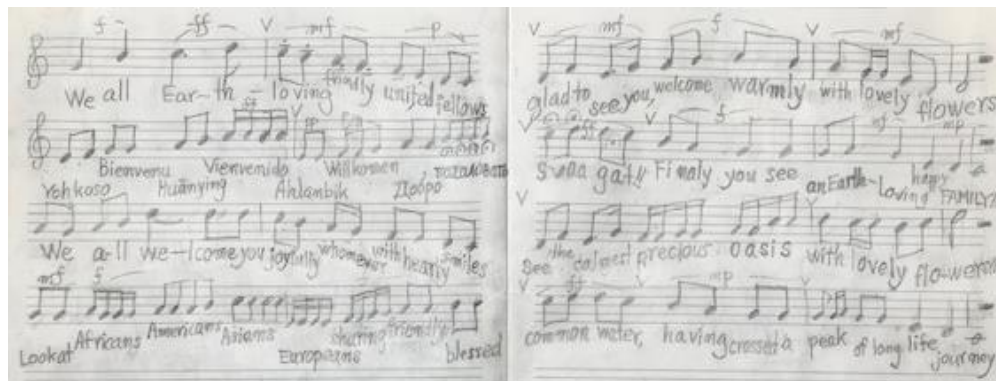 f ff V mf p
We all Ear-th-loving friendly united fellows
ff V pp
Bienvenu Vienvenido Willkomen
Yohkoso Huānying Ahlanbik Добро пожаловать
We a-ll we-lcome you joyfully whomever with hearty smiles
mf f
Look at Africans Americans Asians Europeans sharing friendly blessed
V mf f V mf
glad to see you, welcome warmly with lovely flowers
V ff V f mf mp
gat!! Finaly you see an Earth-Loving happy FAMILY?
V
See the calmest precious oasis with lovely flowered
V ff V mp V
common water, having crossed a peak of long life journey